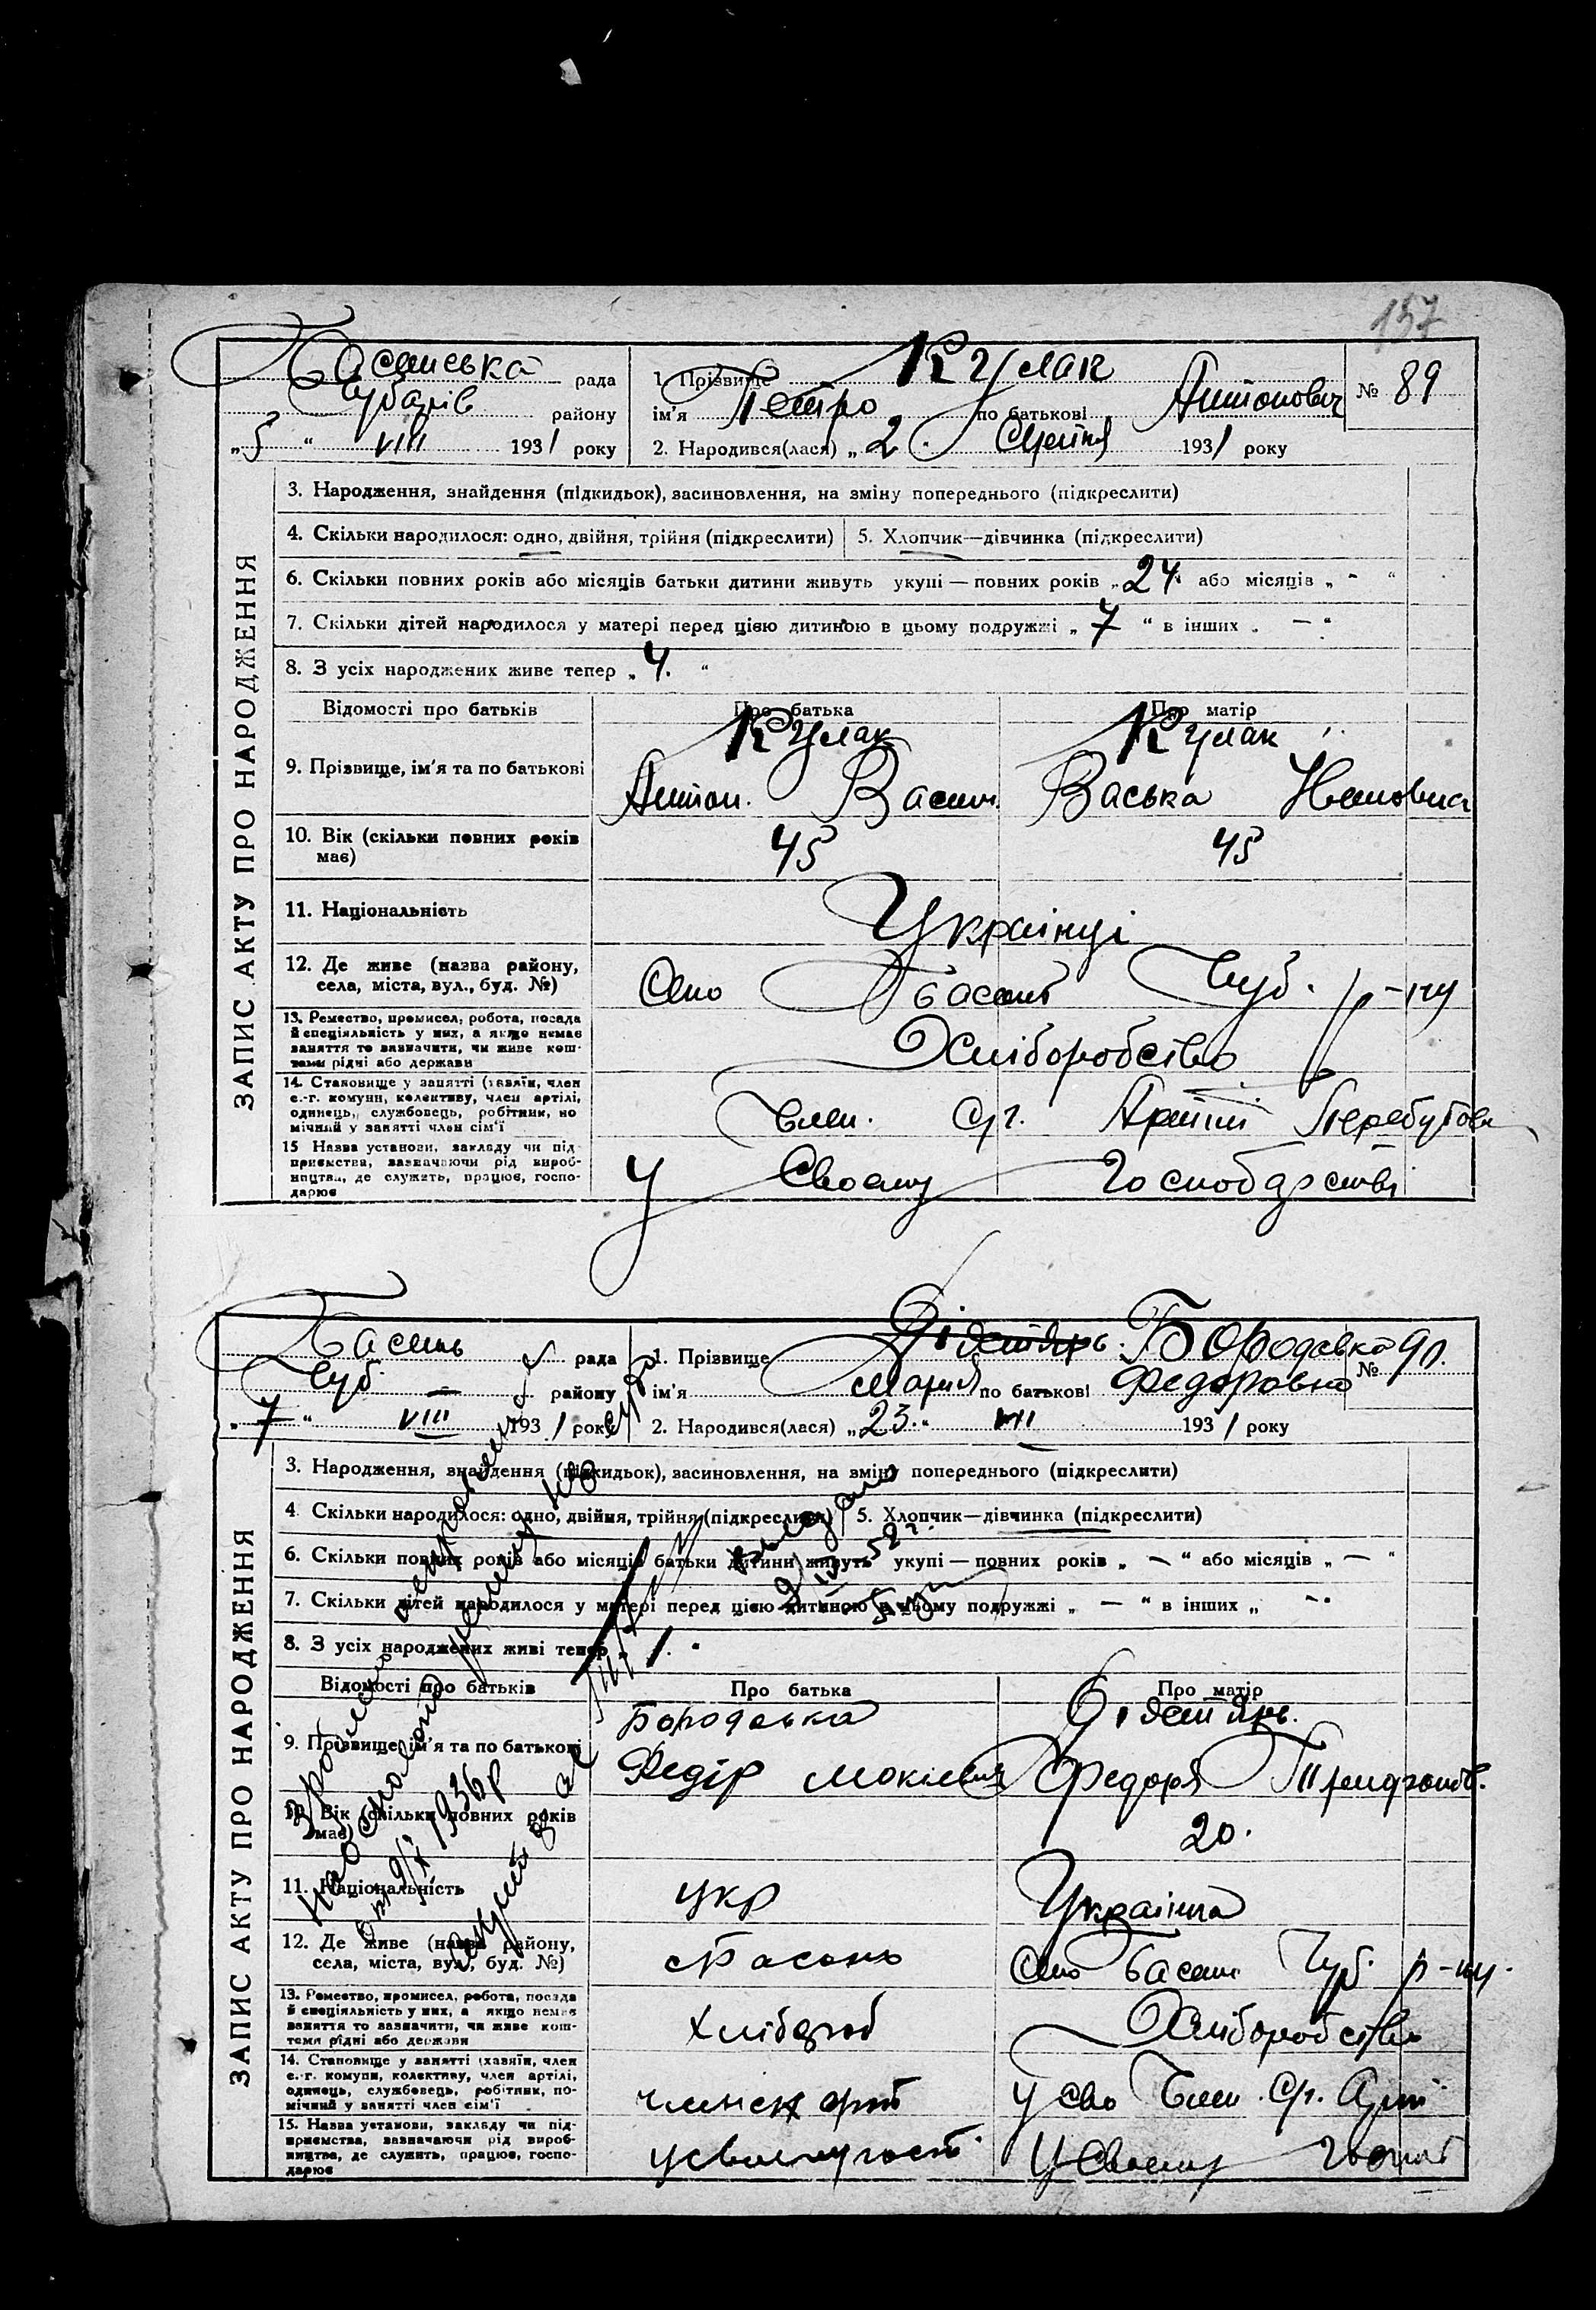 157
Басанська рада
Чубарів району
„5“ VIII 1931 року
1. Прізвище Кулак
ім'я Петро по батькові Антонович
2. Народився(лася) „2. Серпня 1931 року
№ 89
ЗАПИС АКТУ ПРО НАРОДЖЕННЯ
3. Народження, знайдення (підкидьок), засиновлення, на зміну попереднього (підкреслити)
4. Скільки народилося: одно, двійня, трійня (підкреслити) 5. Хлопчик—дівчинка (підкреслити)
6. Скільки повних років або місяців батьки дитини живуть укупі — повних років „24. або місяців „ - “
7. Скільки дітей народилося у матері перед цією дитиною в цьому подружжі „ 7 “ в інших „ — “
8. З усіх народжених живе тепер „ 4. “
Відомості про батьків Про батька Про матір
Кулак Кулак
9. Прізвище, ім'я та по батькові
Антон. Васил. Васька Ивановна
10. Вік (скільки повних років має) 45 45
11. Національність Українці
12. Де живе (назва району, села, міста, вул., буд. №) Село Басань Чуб. р-ну
13. Ремество, промисел, робота, посада й спеціяльність у них, а якщо немає заняття то зазначити, чи живе коштами рідні або держави Хліборобство
14. Становище у занятті (хазяїн, член с.-г. комуни, колективу, член артілі, одинець, службовець, робітник, помічний у занятті член сім'ї Член. С/г. Артіли
15 Назва установи, закладу чи підприємства, зазначаючи рід виробництва, де служить, працює, господарює У Своему Господарстві
Басань рада
Чуб. — району
„ 7 “ VIII 1931 року
1. Прізвище Дігтярь. Бородавка
ім'я Мария по батькові Федоровна
2. Народився(лася) „23.“ VII 1931 року
№ 90.
ЗАПИС АКТУ ПРО НАРОДЖЕННЯ
3. Народження, знайдення (підкидьок), засиновлення, на зміну попереднього (підкреслити)
4 Скільки народилося: одно, двійня, трійня (підкреслити) 5. Хлопчик—дівчинка (підкреслити)
6. Скільки повних років або місяців батьки дитини живуть укупі — повних років „ — “ або місяців „ — “
7. Скільки дітей народилося у матері перед цією дитиною в цьому подружжі „ — “ в інших „ —“
8. З усіх народжених живі тепер „ 1. “
Відомості про батьків Про батька Про матір
Бородавка Дігтярь.
9. Прізвище, ім'я та по батькові
Федір Мокієвич Федора
10. Вік (скільки повних років має) 20.
11. Національність укр Українка
12. Де живе (назва району, села, міста, вул., буд. №) с Басань Село Басань Чуб. р-ну.
13. Ремество, промисел, робота, посада й спеціяльність у них, а якщо немає заняття то зазначити, чи живе коштами рідні або держави хлібороб Хліборобство
14. Становище у занятті (хазяїн, член с.-г. комуни, колективу, член артілі, одинець, службовець, робітник, помічний у занятті член сім'ї член с/г арт у сво Член. С/г. Арті
15. Назва установи, закладу чи підприємства, зазначаючи рід виробництва, де служить, працює, господарює у своему госп. У Своему
Зроблено исправлення
на основі
от 9/X 1936 р